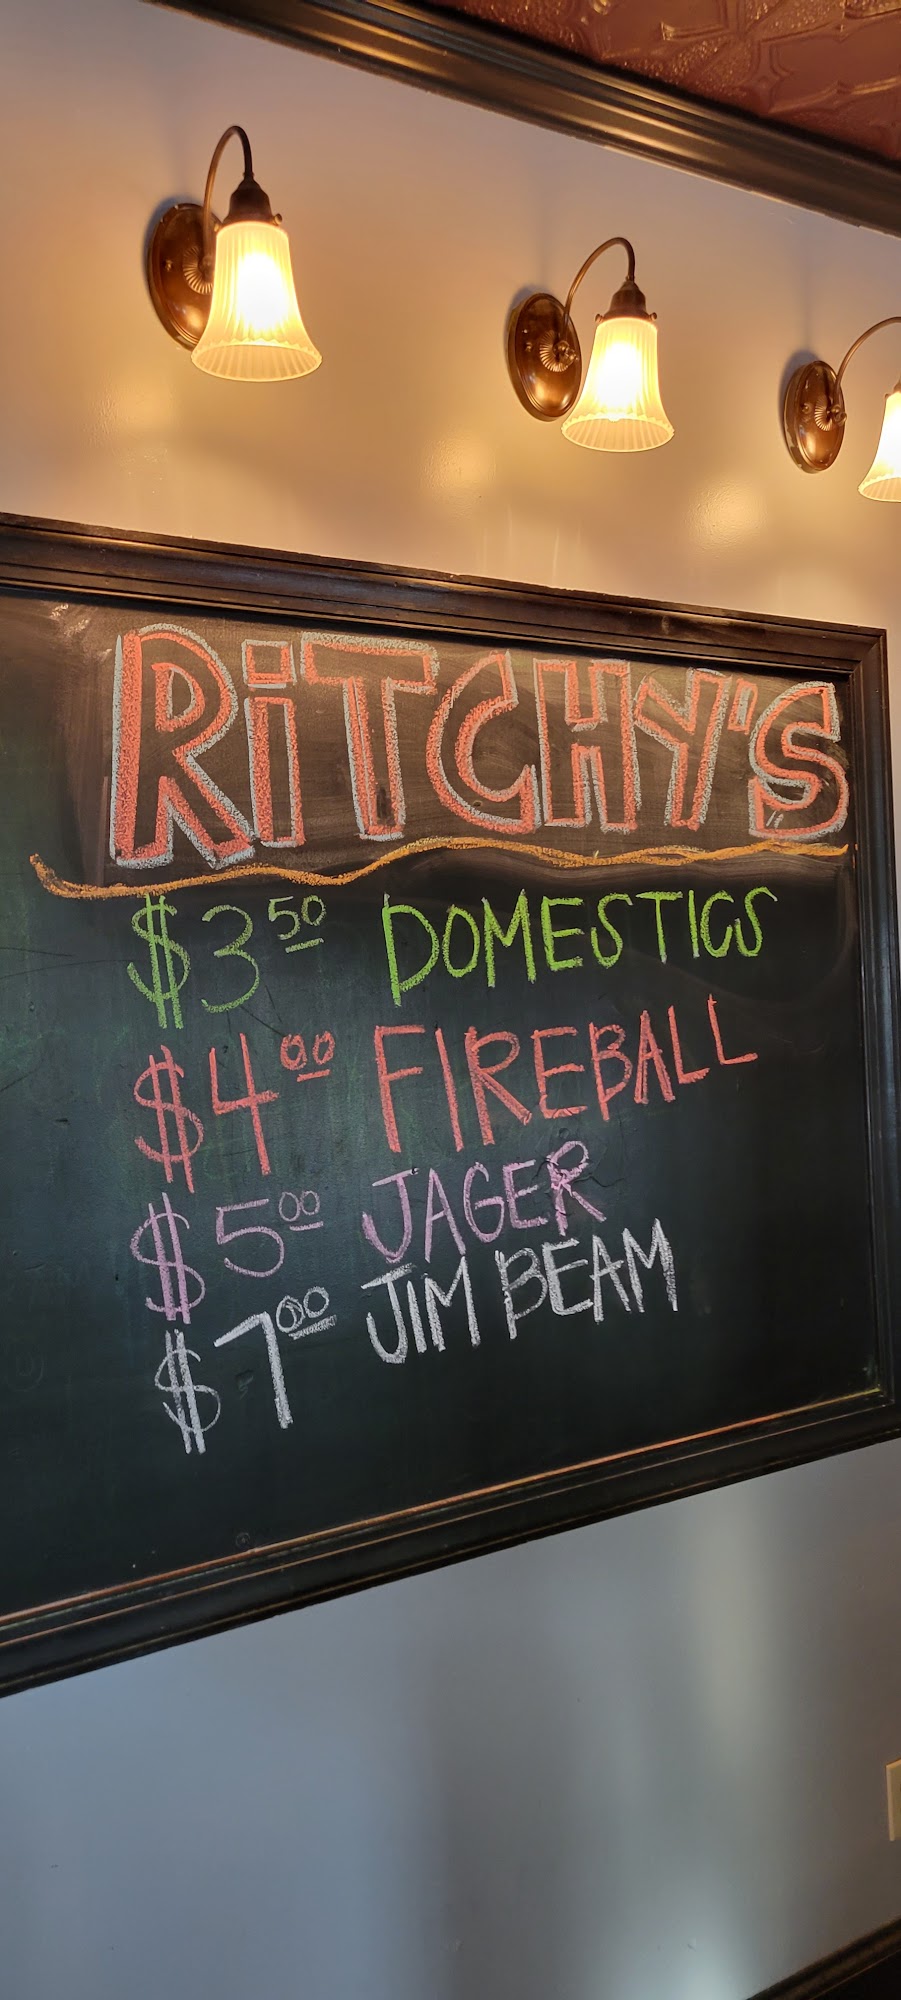 RiTCHY'S
$3.50 DOMESTICS
$4.00 FIREBALL
$5.00 JAGER
$7.00 JIM BEAM